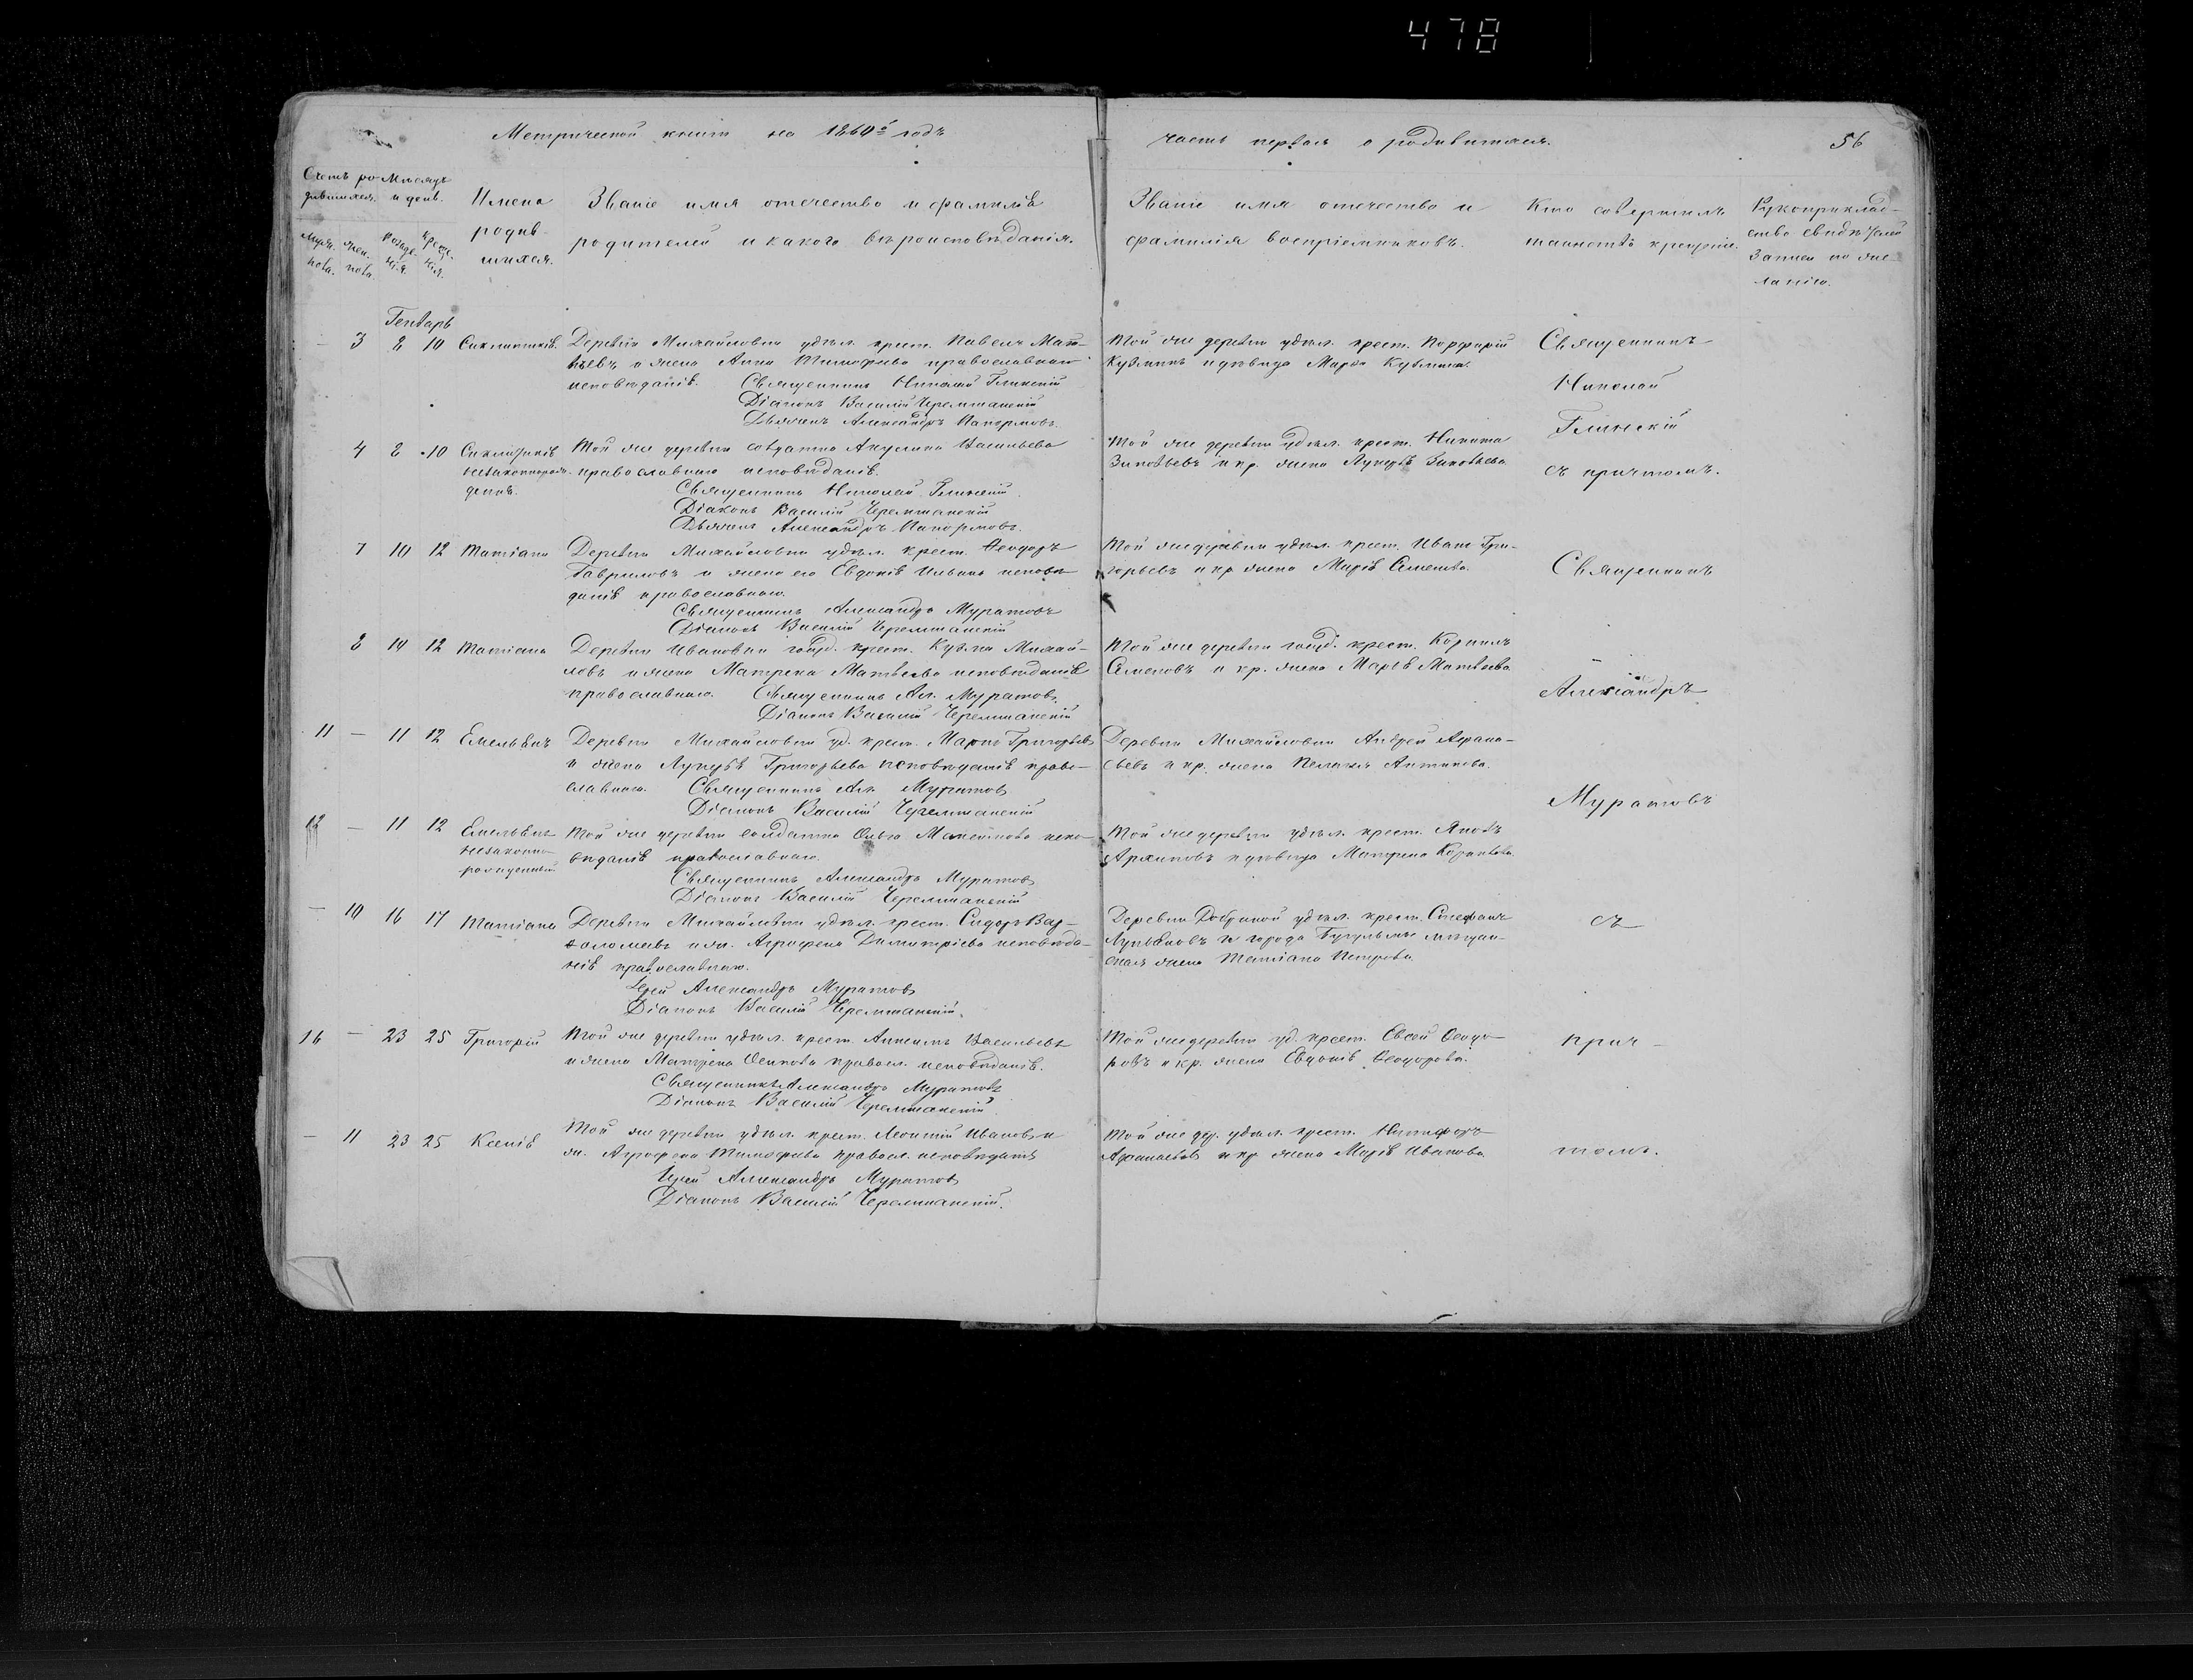 478
Метрической книги на 1860й годъ
часть первая о родившихся.
56
Счетъ ро-
дившихся.
Муж. пола.
жен. пола.
Мѣсяцъ
и день.
рожде-
нія.
креще-
нія.
Имена
родив-
шихся.
Званіе имя отечество и фамилія
родителей и какого вѣроисповѣданія.
Званіе имя отечество и
фамилія воспріемниковъ.
Кто совершилъ
таинство крещенія.
Рукоприклад-
ство свидѣтелей
записи по же-
ланію.
Генварь
— 3 8 10 Сиклитикія.
Деревни Михайловки удѣл. крест. Павелъ Мат-
вѣевъ и жена Анна Тимофеева православнаго
исповѣданія. Священникъ Николай Глинскій
Діаконъ Василій Черемшанскій
Дьячекъ Александръ
Той же деревни удѣл. крест. Порфирій
Кузминъ и дѣвица Марѳа Кузмина.
4 8 10 Сиклитикія
незаконнорож-
денная.
Той же деревни солдатка Акулина Васильева
православнаго исповѣданія.
Священникъ Николай Глинскій
Діаконъ Василій Черемшанскій
Дьячекъ Александръ
Той же деревни удѣл. крест. Никита
Зиновьевъ и кр. жена Лукерья Зиновьева.
Священникъ
Николай
Глинскій
съ причтомъ.
7 10 12 Татіана
Деревни Михайловки удѣл. крест. Ѳеодоръ
Гавриловъ и жена его Евдокія Ильина исповѣ-
данія православнаго.
Священникъ Александръ Муратовъ
Діаконъ Василій Черемшанскій
Той же деревни удѣл. крест. Иванъ Гри-
горьевъ и кр. жена Марія Семенова.
8 14 12 Татіана
Деревни Ивановки госуд. крест. Кузма Михай-
ловъ и жена Матрена Матвѣева исповѣданія
православнаго. Священникъ Ал. Муратовъ
Діаконъ Василій Черемшанскій
Той же деревни госуд. крест. Корнилъ
Семеновъ и кр. жена Марья Матвѣева.
11 — 11 12 Емельянъ
Деревни Михайловки уд. крест. Маркъ Григорьевъ
и жена Лукерья Григорьева исповѣданія право-
славнаго. Священникъ Ал. Муратовъ
Діаконъ Василій Черемшанскій
Деревни Михайловки Андрей Афана-
сьевъ и кр. жена Пелагія Антипова.
12 — 11 12 Емельянъ
незаконно-
рожденный
Той же деревни солдатка Ольга Максимова испо-
вѣданія православнаго.
Священникъ Александръ Муратовъ
Діаконъ Василій Черемшанскій
Той же деревни удѣл. крест. Яковъ
Архиповъ и дѣвица Матрена
— 10 16 17 Татіана
Деревни Михайловки удѣл. крест. Сидоръ Вар-
ѳоломѣевъ и ж. Агрофена Димитріева исповѣда-
нія православнаго.
Іерей Александръ Муратовъ
Діаконъ Василій Черемшанскій.
Деревни удѣл. крест. Стефанъ
Лукьяновъ и города Бугульмы мѣщан-
ская жена Татіана Петрова.
16 — 23 25 Григорій
Той же деревни удѣл. крест. Василь��въ
и жена Матрена Осипова правосл. исповѣданія.
Священникъ Александръ Муратовъ
Діаконъ Василій Черемшанскій.
Той же деревни уд. крест. Евсей Ѳеодо-
ровъ и кр. жена Евдокія Ѳеодорова.
— 11 23 25 Ксенія
Той же деревни удѣл. крест. Леонтій Ивановъ и
ж. Агрофена Тимофеева правосл. исповѣданія
Іерей Александръ Муратовъ
Діаконъ Василій Черемшанскій.
Той же дер. удѣл. крест. Никифоръ
Афанасьевъ и кр. жена Марія Иванова
Священникъ
Александръ
Муратовъ
съ
прич-
томъ.